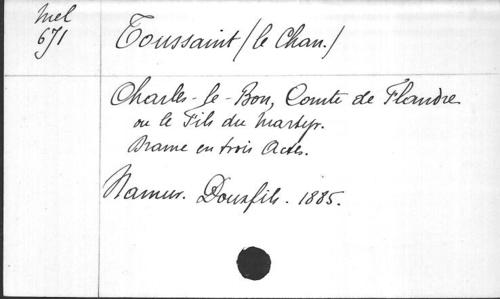 Mel
671
Toussaint (le Chan.)
Charles-le-Bon, Comte de Flandre
ou le Fils du Martyr.
Drame en trois Actes.
Namur. Doux fils. 1885.